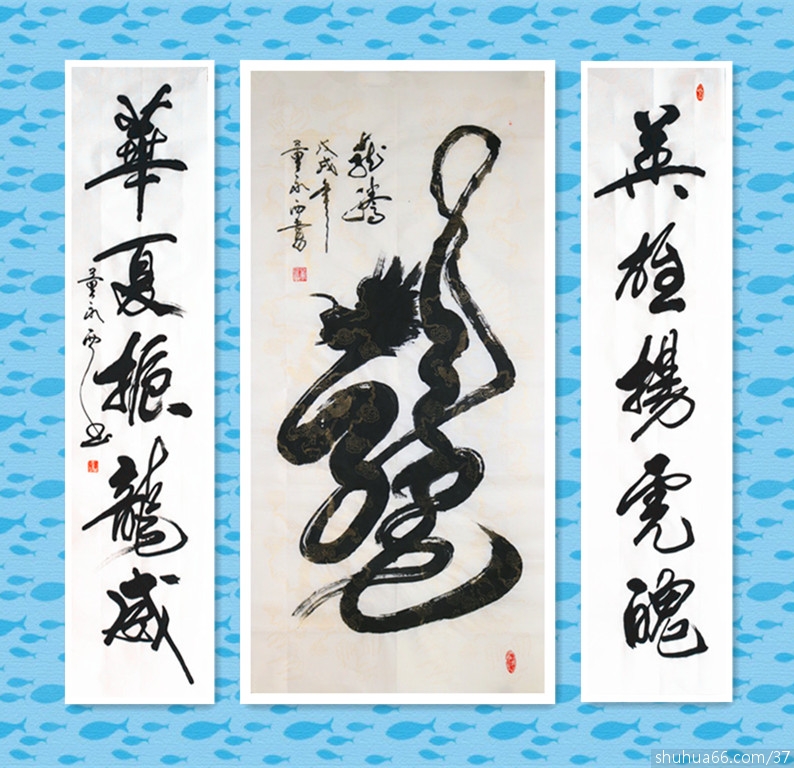 英雄揚虎魄
龍騰
戊戌年
董永西書
龍
華夏振龍威
董永西书
shuhua66.com/37